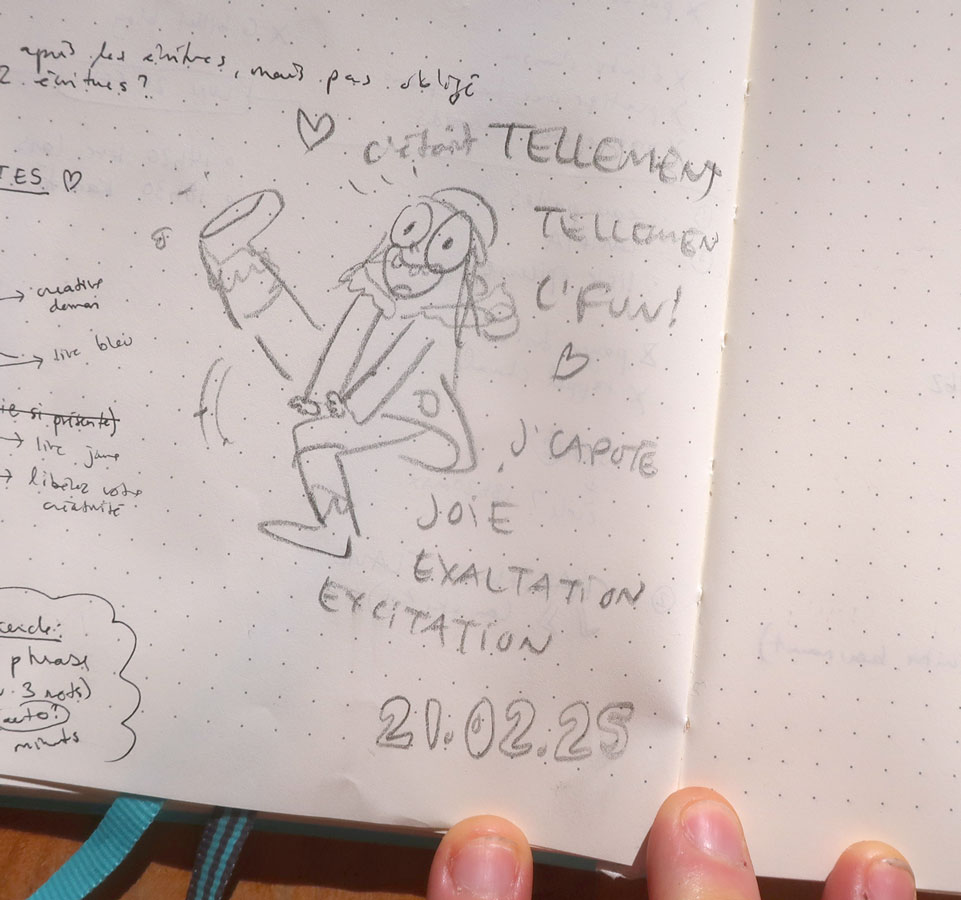 après les écritures, mais pas obligé
2 écritures?
TES ♡
→ creative
demain
→ live bleu
ie si présente)
→ live jaune
→ libérez votre
créativité
phrase
3 mots)
auto?
minutes
♡ c'était TELLEMENT
TELLEMEN
L'FUN!
J'CAPOTE
JOIE
EXALTATION
EXCITATION
21.02.25